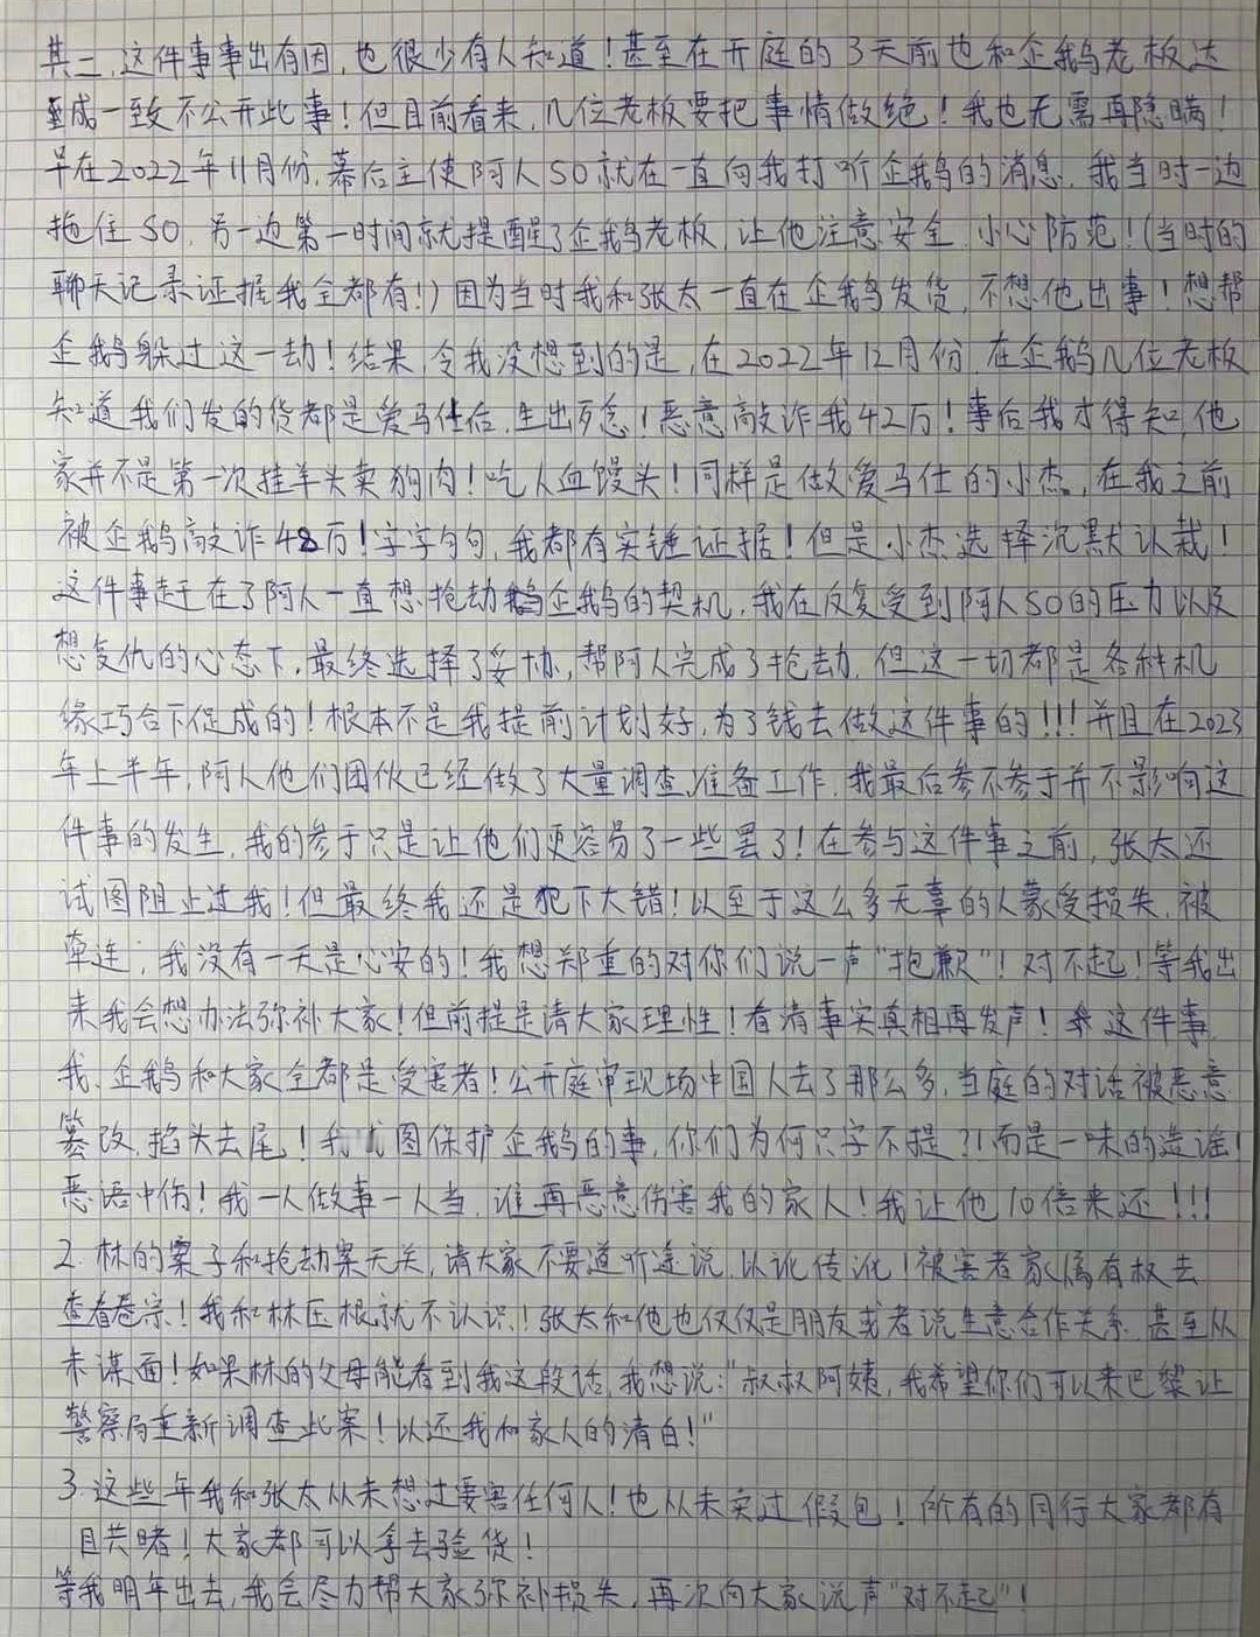 其二,这件事事出有因,也很少有人知道!甚至在开庭的3天前也和企鹅老板达
成一致不公开此事!但目前看来,几位老板要把事情做绝!我也无需再隐瞒!
早在2022年11月份,幕后主使阿人SO就在一直向我打听企鹅的消息,我当时一边
拖住SO,另一边第一时间就提醒了企鹅老板,让他注意安全,小心防范!(当时的
聊天记录证据我全都有!)因为当时我和张太一直在企鹅发货,不想他出事!想帮
企鹅躲过这一劫!结果,令我没想到的是,在2022年12月份,在企鹅几位老板
知道我们发的货都是爱马仕后,生出歹念!恶意敲诈我42万!事后我才得知,他
家并不是第一次挂羊头卖狗肉!吃人血馒头!同样是做爱马仕的小杰,在我之前
被企鹅敲诈48万!字字句句,我都有实锤证据!但是小杰选择沉默认栽!
这件事赶在了阿人一直想抢劫企鹅的契机,我在反复受到阿人SO的压力以及
想复仇的心态下,最终选择了妥协,帮阿人完成了抢劫,但这一切都是各种机
缘巧合下促成的!根本不是我提前计划好,为了钱去做这件事的!!!并且在2023
年上半年,阿人他们团伙已经做了大量调查准备工作,我最后参不参于并不影响这
件事的发生,我的参于只是让他们更容易了一些罢了!在参与这件事之前,张太还
试图阻止过我!但最终我还是犯下大错!以至于这么多无辜的人蒙受损失,被
牵连,我没有一天是心安的!我想郑重的对你们说一声"抱歉"!对不起!等我出
来我会想办法弥补大家!但前提是请大家理性!看清事实真相再发声!这件事
我、企鹅和大家全都是受害者!公开庭审现场中国人去了那么多,当庭的对话被恶意
篡改,掐头去尾!我试图保护企鹅的事,你们为何只字不提?!而是一味的造谣!
恶语中伤!我一人做事一人当,谁再恶意伤害我的家人!我让他10倍来还!!!
2.林的案子和抢劫案无关,请大家不要道听途说,以讹传讹!被害者家属有权去
查看卷宗!我和林压根就不认识!张太和他也仅仅是朋友或者说生意合作关系,甚至从
未谋面!如果林的父母能看到我这段话,我想说:"叔叔阿姨,我希望你们可以来巴黎让
警察局重新调查此案!以还我和家人的清白!"
3.这些年我和张太从未想过要害任何人!也从未卖过假包!所有的同行大家都有
目共睹!大家都可以拿去验货!
等我明年出去,我会尽力帮大家弥补损失,再次向大家说声"对不起"!